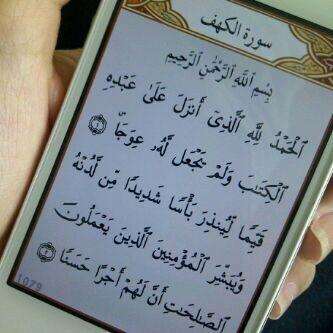 سورة الكهف
بِسْمِ ٱللَّهِ ٱلرَّحْمَٰنِ ٱلرَّحِيمِ
ٱلْحَمْدُ لِلَّهِ ٱلَّذِىٓ أَنزَلَ عَلَىٰ عَبْدِهِ
ٱلْكِتَٰبَ وَلَمْ يَجْعَل لَّهُۥ عِوَجَا ۜ ١
قَيِّمًا لِّيُنذِرَ بَأْسًا شَدِيدًا مِّن لَّدُنْهُ
وَيُبَشِّرَ ٱلْمُؤْمِنِينَ ٱلَّذِينَ يَعْمَلُونَ
ٱلصَّٰلِحَٰتِ أَنَّ لَهُمْ أَجْرًا حَسَنًا ٢
1079